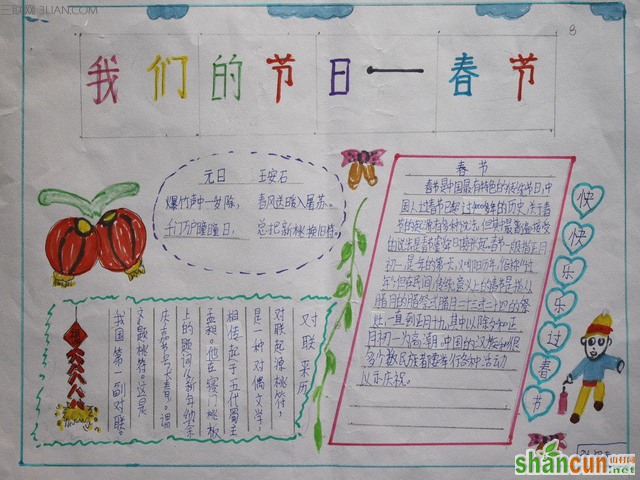 三联网 3LIAN.COM
8
我们的节日——春节
元日 王安石
爆竹声中一岁除，春风送暖入屠苏。
千门万户曈曈日，总把新桃换旧符。
春节
春节是中国最有特色的传统节日，中
国人过春节已超过4000多年的历史，关于春
节的起源有多种说法，但
春节一般指正月
初一，是年的第一天，又叫阴历年，俗称“过
年”，但在民间，传统意义上的春节是指从
腊月的腊祭或腊月二十三
一直到正月十九，其中以除夕和正
月初一为高潮。中国的汉族和很
多少数民族都要举行各种活动
以示庆祝。
快快乐乐过春节
对联来历
对联起源桃符，
是一种对偶文学，
相传起于五代蜀主
孟昶。他在寝门桃板
上的题词“新年纳余
庆，嘉节号长春”，谓
文“题桃符”，这是
我国第一副对联。
福
山村网
shancun.net